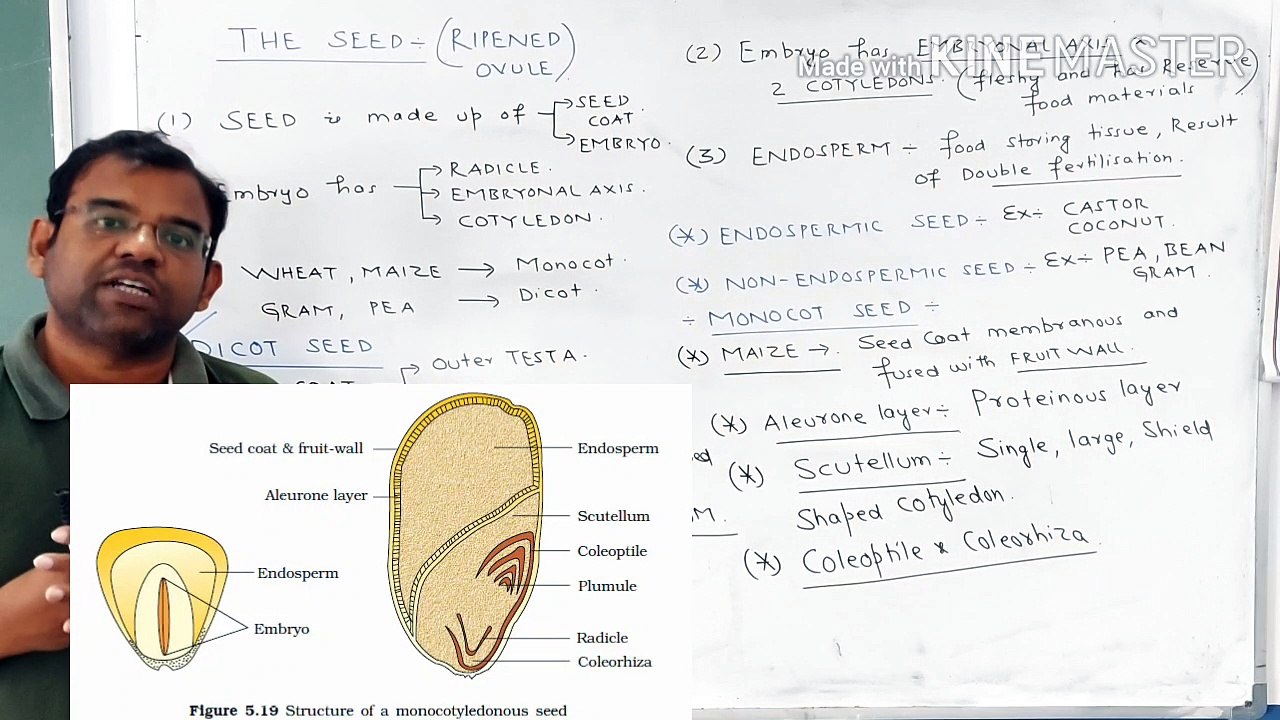 THE SEED ÷ (RIPENED
OVULE)
(1) SEED is made up of
SEED
COAT
EMBRYO.
Embryo has
RADICLE.
EMBRYONAL AXIS.
COTYLEDON.
WHEAT, MAIZE → Monocot.
GRAM, PEA → Dicot.
DICOT SEED
COAT
Outer TESTA.
ed
M.
(2) Embryo has EMBRYONAL AXIS &
2 COTYLEDONS. (fleshy and has Reserve
food materials)
Made with KINEMASTER
(3) ENDOSPERM ÷ food storing tissue, Result
of Double fertilisation.
(*) ENDOSPERMIC SEED ÷ Ex ÷ CASTOR
COCONUT.
(*) NON-ENDOSPERMIC SEED ÷ Ex ÷ PEA, BEAN
GRAM.
÷ MONOCOT SEED ÷
(*) MAIZE → Seed Coat membranous and
fused with FRUIT WALL.
(*) Aleurone layer ÷ Proteinous layer
(*) Scutellum ÷ Single, large, Shield
Shaped Cotyledon.
(*) Coleoptile & Coleorhiza.
Seed coat & fruit-wall
Aleurone layer
Endosperm
Embryo
Endosperm
Scutellum
Coleoptile
Plumule
Radicle
Coleorhiza
Figure 5.19 Structure of a monocotyledonous seed